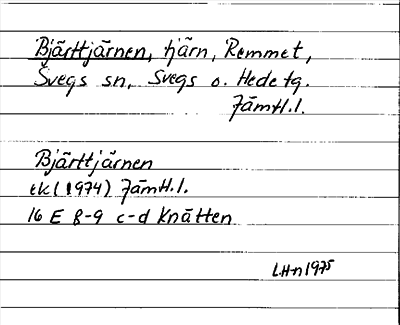 Bjärttjärnen, tjärn, Remmet,
Svegs sn, Svegs o. Hede tg.
Jämtl.l.
Bjärttjärnen
ek (1974) Jämtl.l.
16 E 8-9 c-d Knätten
LH-n 1975